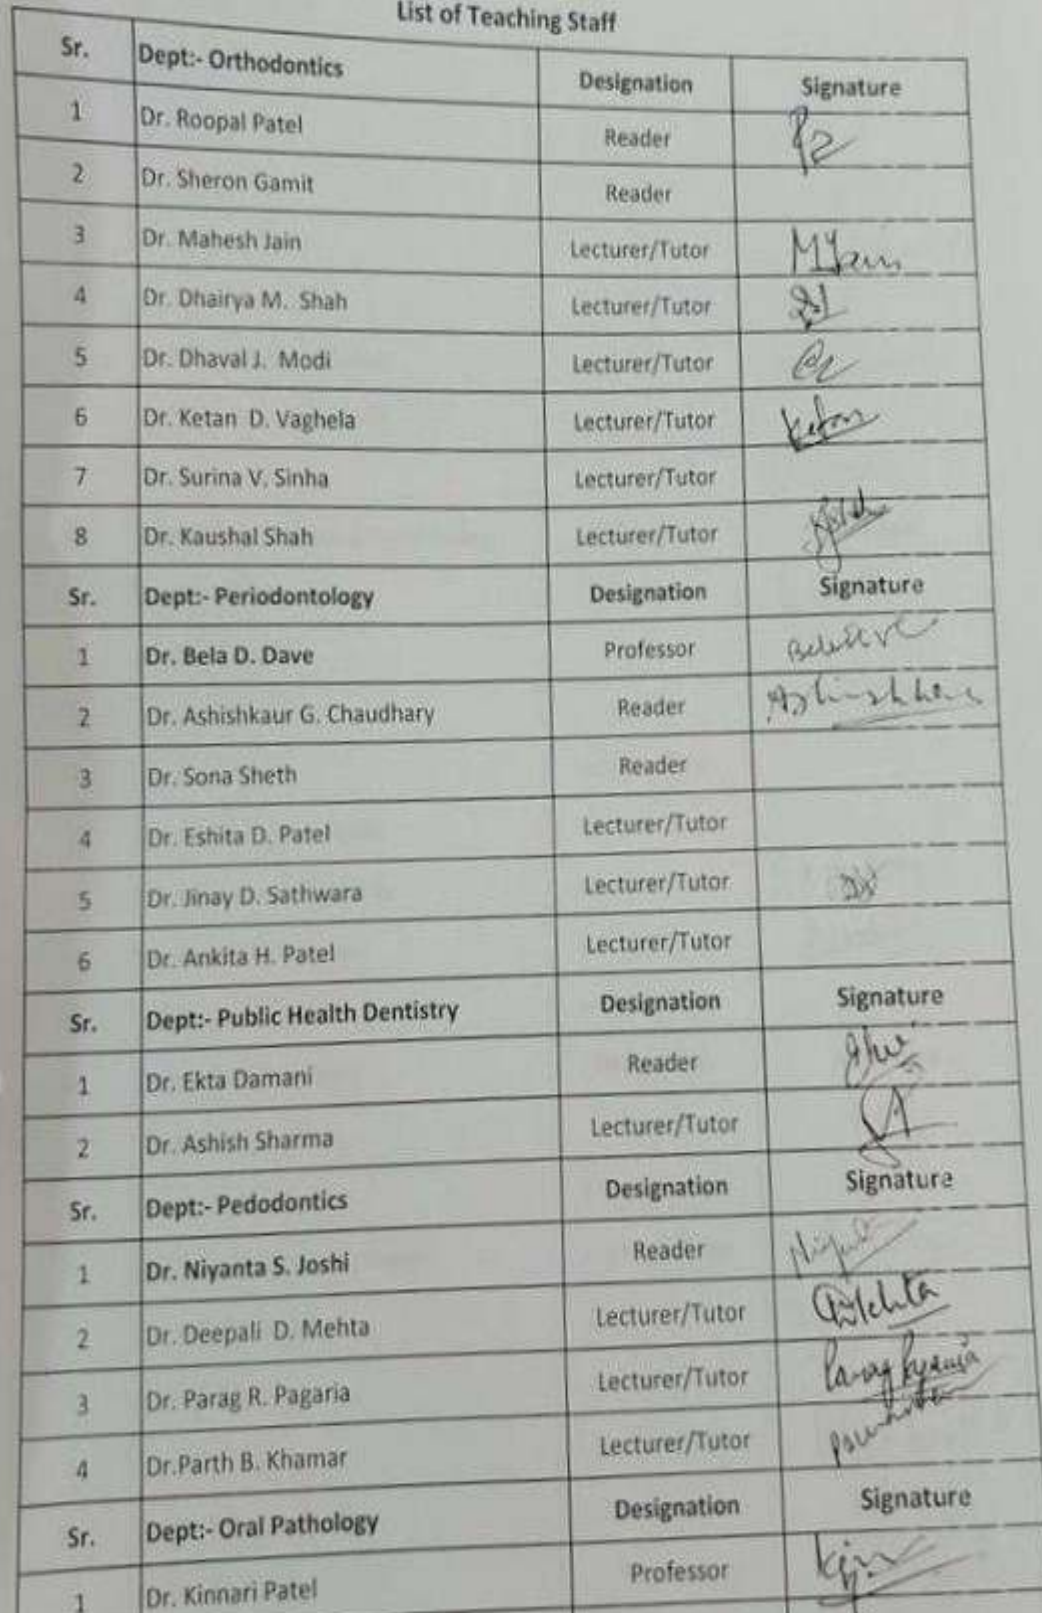 List of Teaching Staff
Sr. Dept:- Orthodontics Designation Signature
1 Dr. Roopal Patel Reader
2 Dr. Sheron Gamit Reader
3 Dr. Mahesh Jain Lecturer/Tutor MJain
4 Dr. Dhairya M. Shah Lecturer/Tutor
5 Dr. Dhaval J. Modi Lecturer/Tutor
6 Dr. Ketan D. Vaghela Lecturer/Tutor Ketan
7 Dr. Surina V. Sinha Lecturer/Tutor
8 Dr. Kaushal Shah Lecturer/Tutor
Sr. Dept:- Periodontology Designation Signature
1 Dr. Bela D. Dave Professor
2 Dr. Ashishkaur G. Chaudhary Reader
3 Dr. Sona Sheth Reader
4 Dr. Eshita D. Patel Lecturer/Tutor
5 Dr. Jinay D. Sathwara Lecturer/Tutor
6 Dr. Ankita H. Patel Lecturer/Tutor
Sr. Dept:- Public Health Dentistry Designation Signature
1 Dr. Ekta Damani Reader
2 Dr. Ashish Sharma Lecturer/Tutor
Sr. Dept:- Pedodontics Designation Signature
1 Dr. Niyanta S. Joshi Reader
2 Dr. Deepali D. Mehta Lecturer/Tutor
3 Dr. Parag R. Pagaria Lecturer/Tutor
4 Dr.Parth B. Khamar Lecturer/Tutor
Sr. Dept:- Oral Pathology Designation Signature
1 Dr. Kinnari Patel Professor